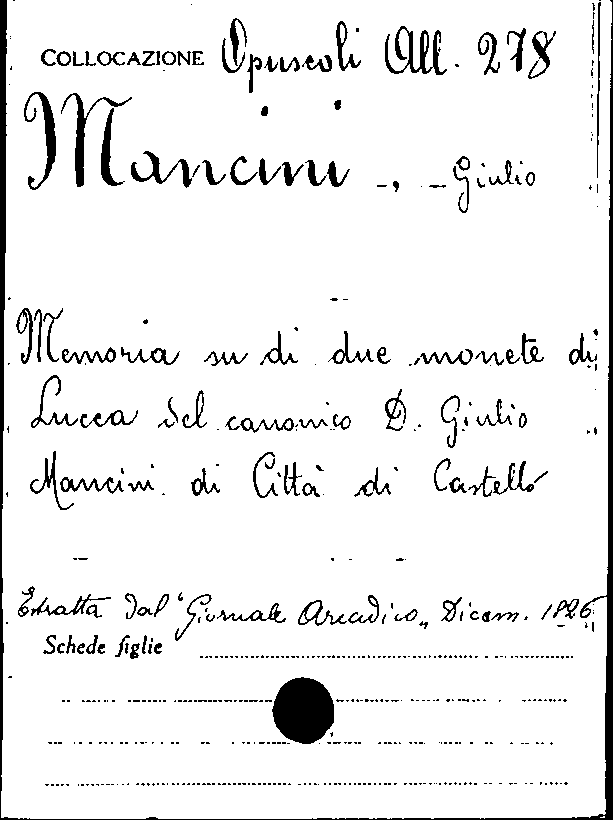 COLLOCAZIONE Opuscoli All. 278
Mancini, Giulio
Memoria su di due monete di
Lucca del canonico D. Giulio
Mancini di Città di Castello
Estratta dal "Giornale Arcadico„ Dicem. 1826
Schede figlie